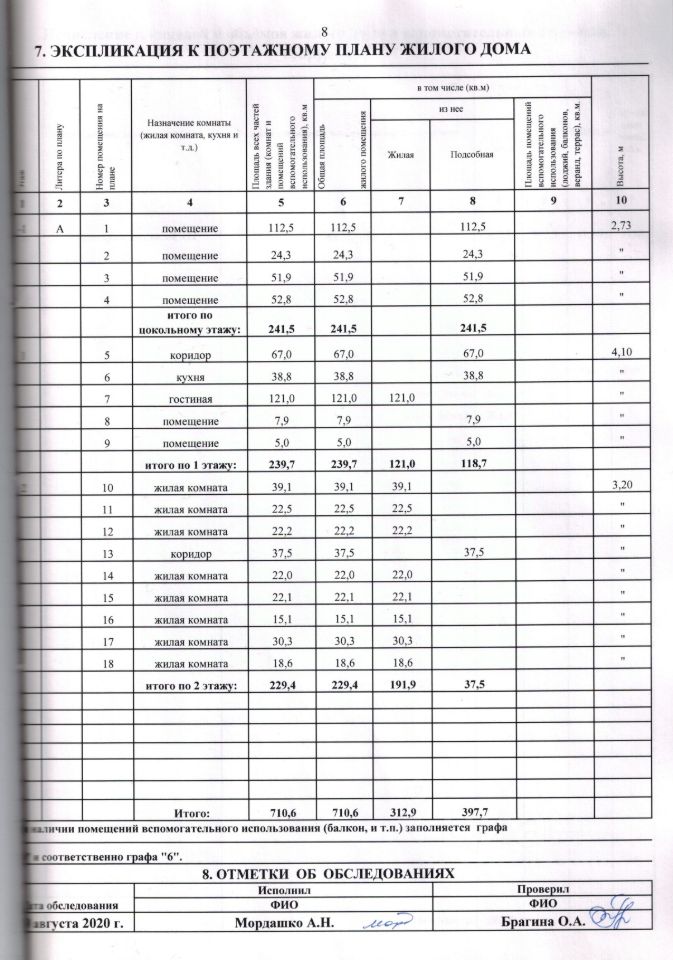 8
7. ЭКСПЛИКАЦИЯ К ПОЭТАЖНОМУ ПЛАНУ ЖИЛОГО ДОМА
Литера по плану
Номер помещения на плане
Назначение комнаты (жилая комната, кухня и т.д.)
Площадь всех частей здания (комнат и помещений вспомогательного использования), кв.м
в том числе (кв.м)
Общая площадь жилого помещения
из нее
Жилая
Подсобная
Площадь помещений вспомогательного использования (лоджий, балконов, веранд, террас), кв.м.
Высота, м
1 2 3 4 5 6 7 8 9 10
-1 А 1 помещение 112,5 112,5 112,5 2,73
2 помещение 24,3 24,3 24,3 "
3 помещение 51,9 51,9 51,9 "
4 помещение 52,8 52,8 52,8 "
итого по
цокольному этажу: 241,5 241,5 241,5
1 5 коридор 67,0 67,0 67,0 4,10
6 кухня 38,8 38,8 38,8 "
7 гостиная 121,0 121,0 121,0 "
8 помещение 7,9 7,9 7,9 "
9 помещение 5,0 5,0 5,0 "
итого по 1 этажу: 239,7 239,7 121,0 118,7
2 10 жилая комната 39,1 39,1 39,1 3,20
11 жилая комната 22,5 22,5 22,5 "
12 жилая комната 22,2 22,2 22,2 "
13 коридор 37,5 37,5 37,5 "
14 жилая комната 22,0 22,0 22,0 "
15 жилая комната 22,1 22,1 22,1 "
16 жилая комната 15,1 15,1 15,1 "
17 жилая комната 30,3 30,3 30,3 "
18 жилая комната 18,6 18,6 18,6 "
итого по 2 этажу: 229,4 229,4 191,9 37,5
Итого: 710,6 710,6 312,9 397,7
наличии помещений вспомогательного использования (балкон, и т.п.) заполняется графа
и соответственно графа "6".
8. ОТМЕТКИ ОБ ОБСЛЕДОВАНИЯХ
Исполнил Проверил
обследования ФИО ФИО
августа 2020 г. Мордашко А.Н. Брагина О.А.